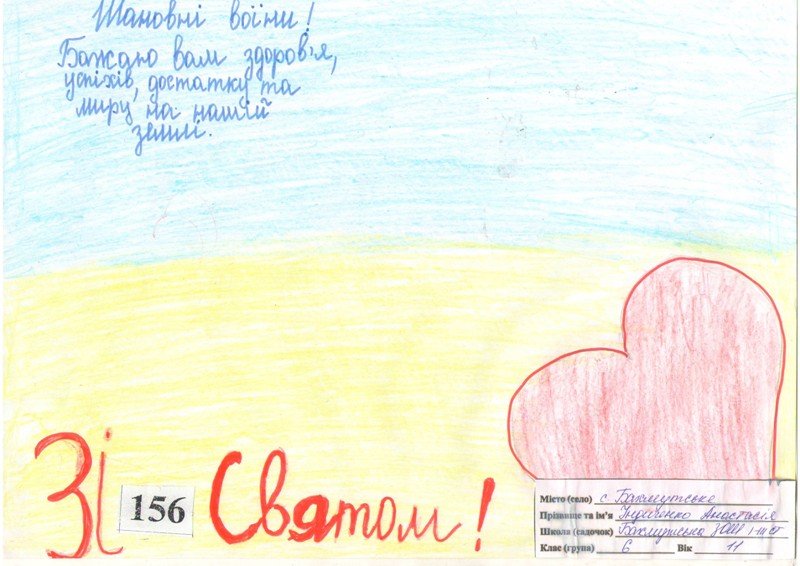 Шановні воїни!
Бажаю вам здоров'я,
успіхів, достатку та
миру на нашій
землі.
Зі Святом!
156
Місто (село) с. Бахмутське
Прізвище та ім'я Анастасія
Школа (садочок) Бахмутська ЗОШ І-ІІІ ст
Клас (група) 6 Вік 11